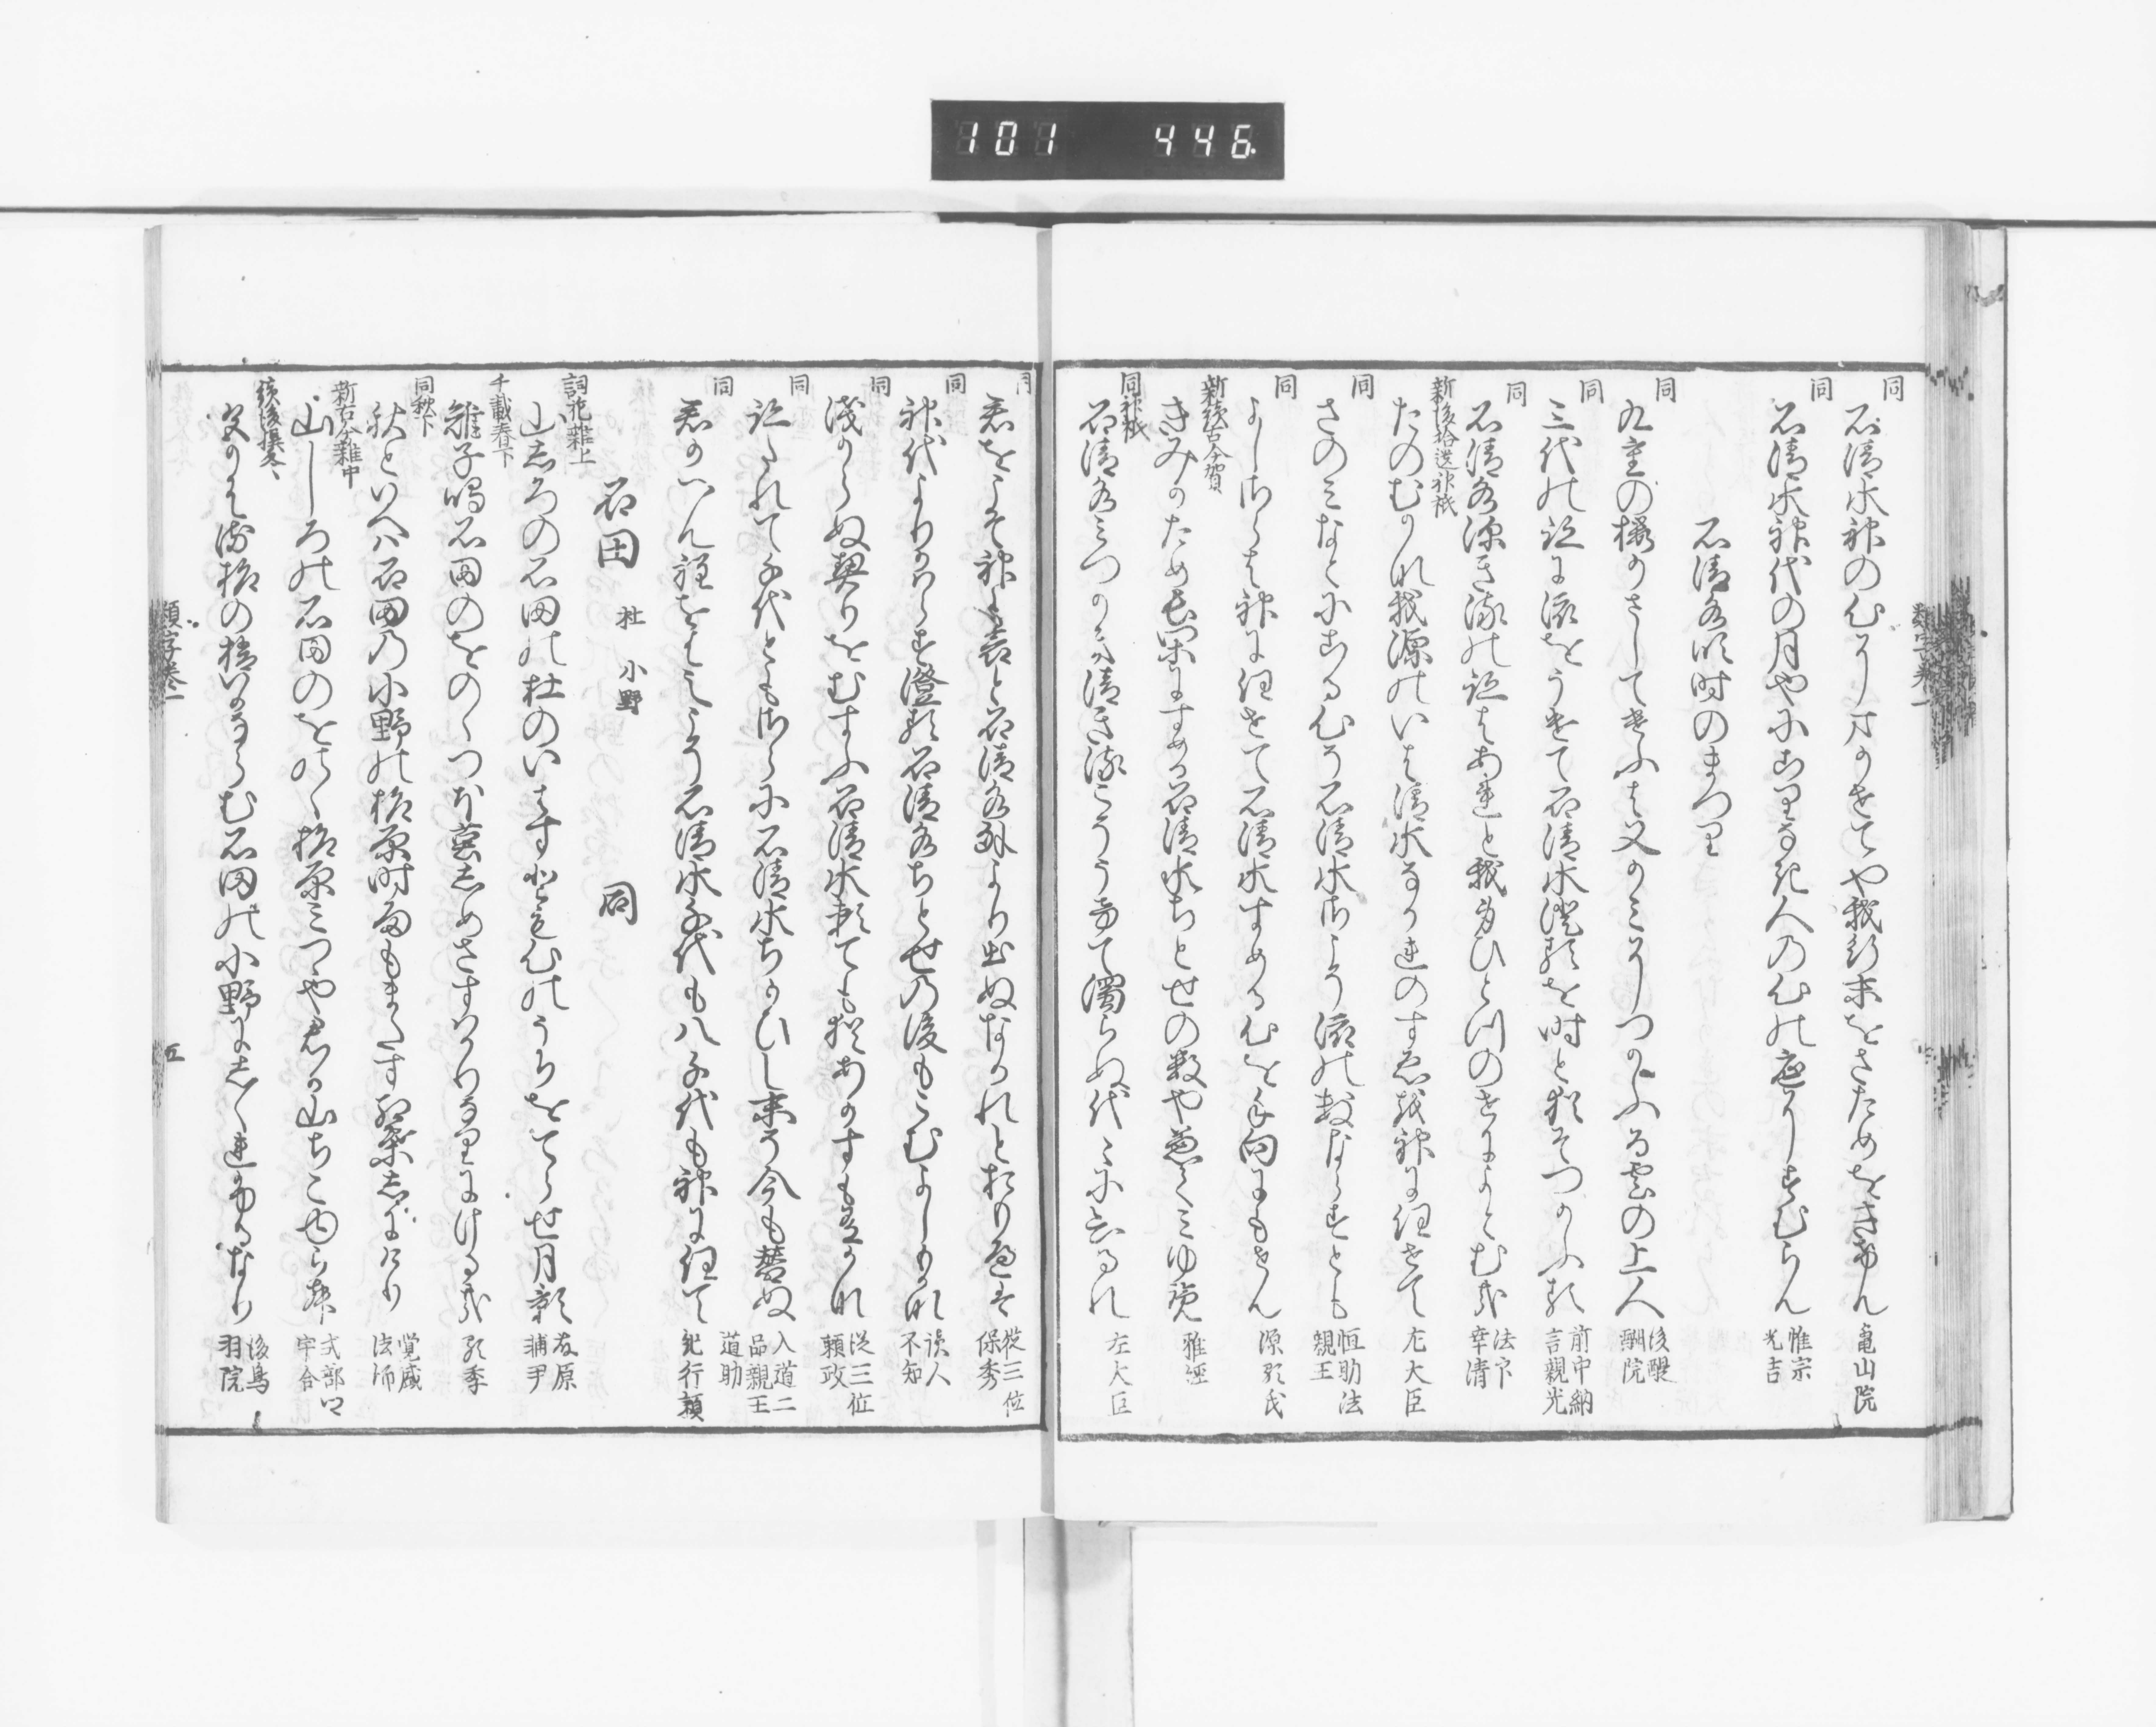 101 446
類字巻一
同
石清水神の心にまかせてや我行末をさためをきけん 亀山院
同
石清水神代の月やにこりなき人の心の底にすむらん 惟宗光吉
石清水臨時のまつり
同
九重の桜かさしてけふは又かみにつかふる雲の上人 後醍醐院
同
三代の跡に流をうけて石清水澄るを時と猶そつかふる 前中納言親光
同
石清水深き流の跡はあれと我身ひとつのせによとむ哉 法印幸清
新後拾遺神祇
たのむかな我源のいは清水なかれのすゑを神に任せて 左大臣
同
さのみなとにこる心そ石清水にこそ流の数ならすとも 恒助法親王
同
よしさらは神に任せて石清水すめる心を手向にもせん 源頼氏
新続古今賀
きみかため長閑にすめる石清水ちとせの数や兼てみゆ覧 雅経
同神祇
石清水みつかき清き流こそうけて濁らぬ代々に
れ 左大臣
同
君をこそ神も
と石清水
より出ぬなかれとおもへは 従三位保秀
同
神代より
澄る石清水ちとせの後もこむよしもかな 読人不知
同
浅からぬ契りをむすふ石清水頼ても猶あかすも有かな 従三位頼政
同
跡たれて千代ともさらに石清水ちかひし末そ今も替ぬ 入道二品親王道助
同
君かへん程をはしらす石清水千代も八千代も神に任て 紀行頼
石田 杜 小野 同
詞花雑上
山しろの石田の杜のいはすとも心のうちをてらせ月影 藤原輔尹
千載春下
雉子鳴石田のをのゝつほ菫しめさすはかり成にける哉 顕季
同秋下
秋といへは石田の小野の柞原時雨もまたす紅葉しにけり 覚盛法師
新古今雑中
山しろの石田のをのゝ柞原みつや君か山ちこゆらむ 式部卿宇合
続後撰冬
は
柞の
らむ石田の小野にしくれふるなり 後鳥羽院
類字巻一
五